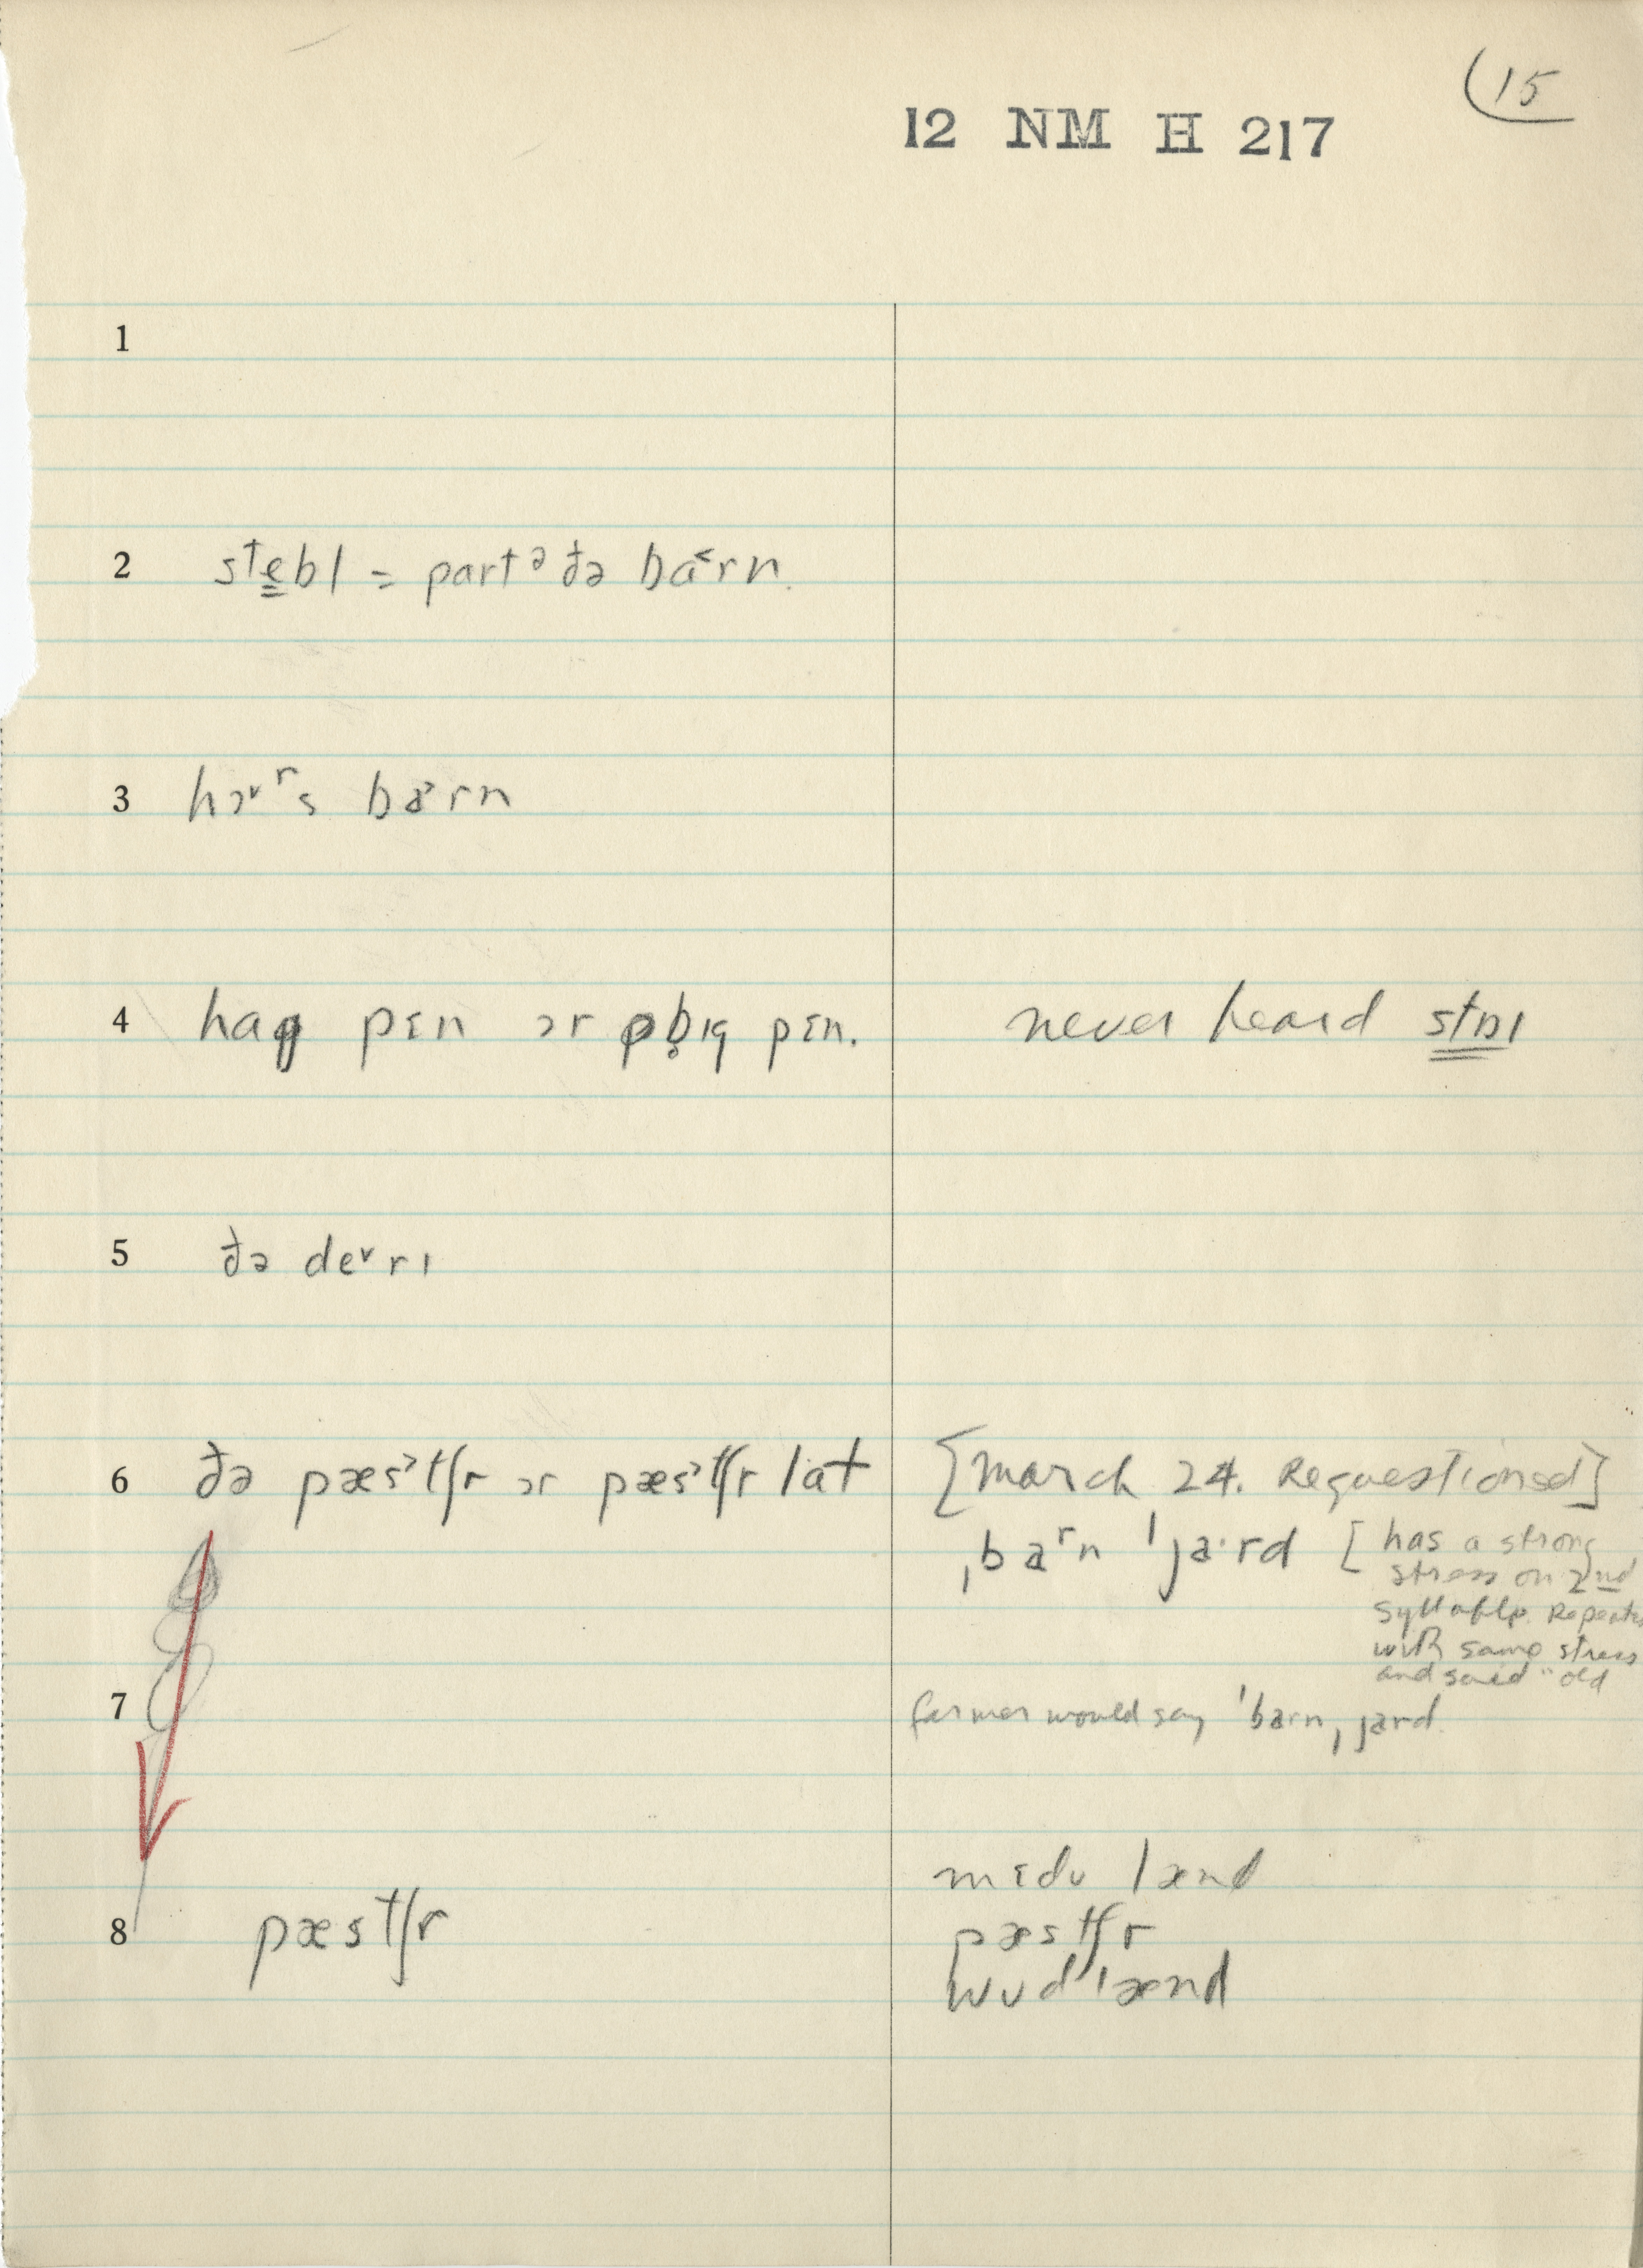 15
12 NM H 217
1
2 stebl = partə ðə ba˂rn.
3 hɔ˅ʳs ba˃rn
4 hag pɛn ɔr pɪg pɛn. never heard staɪ
5 ðə de˅rɪ
6 ðə pæs˒tʃr ɔr pæs˒tʃr lat [March 24. Requestioned]
ˌbaʳn ˈja·rd [has a strong
stress on 2nd
syllable. Repeats
with same stress
and said "old
7 farmer would say ˈbarnˌjard.
mɛdʊ lænd
8 pæstʃr pæstʃr
wʊdˈlænd